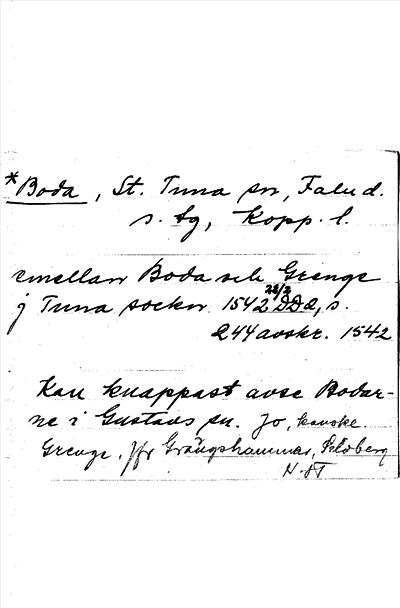 *Boda, St. Tuna sn, Falu d.
s. tg, Kopp. l.
emellan Boda och Grenge
j Tuna socken 1542 28/2 DD2, s.
244 avskr. 1542
Kan knappast avse Bodar-
ne i Gustavs sn. Jo, kanske.
Grenge, jfr Grängshammar, Silvberg